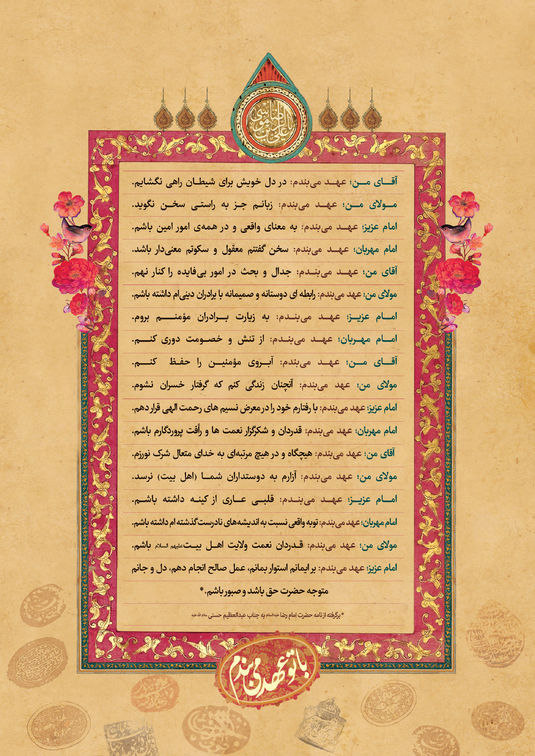 علی بن موسی الرضا
آقـــای مــن؛ عهــد می‌بندم: در دل خویش برای شیطـان راهی نگشایم.
مــولای مــن؛ عهــد می‌بندم: زبانـم جـز به راستـی سخـن نگوید.
امام عزیز؛ عهــد می‌بندم: به معنای واقعی و در همه‌ی امور امین باشم.
امام مهربان؛ عهــد می‌بندم: سخن گفتنم معقول و سکوتم معنی‌دار باشد.
آقای من؛ عهــد می‌بنـدم: جدال و بحث در امور بی‌فایده را کنار نهم.
مولای من؛ عهد می‌بندم: رابطه ای دوستانه و صمیمانه با برادران دینی‌ام داشته باشم.
امـام عزیـز؛ عهــد می‌بنـدم: به زیارت بــرادران مؤمنــــم بروم.
امــام مهــربان؛ عهــد می‌بنـدم: از تنش و خصـومت دوری کنـــم.
آقـــای مــن؛ عهــد می‌بندم: آبــروی مؤمنیــن را حفـظ کنـــم.
مولای من؛ عهد می‌بندم: آنچنان زندگی کنم که گرفتار خسران نشوم.
امام عزیز؛ عهد می‌بندم: با رفتارم خود را در معرض نسیم های رحمت الهی قرار دهم.
امام مهربان؛ عهد می‌بندم: قدردان و شکرگزار نعمت ها و رأفت پروردگارم باشم.
آقای من؛ عهد می‌بندم: هیچگاه و در هیچ مرتبه‌ای به خدای متعال شرک نورزم.
مولای من؛ عهد می‌بندم: آزارم به دوستداران شمـــا (اهل بیت) نرسد.
امـام عزیـز؛ عهــد می‌بنـدم: قلبــی عــاری از کینـه داشته باشــم.
امام مهربان؛ عهد می‌بندم: توبه واقعی نسبت به اندیشه‌های نادرست گذشته ام داشته باشم.
مولای من؛ عهد می‌بندم: قــدردان نعمت ولایت اهــل بیــت علیهم السلام باشم.
امام عزیز؛ عهد می‌بندم: بر ایمانم استوار بمانم، عمل صالح انجام دهم، دل و جانم
متوجه حضرت حق باشد و صبور باشم.*
*برگرفته از نامه حضرت امام رضا علیه‌السلام به جناب عبدالعظیم حسنی سلام الله علیه
با تو عهد می‌بندم